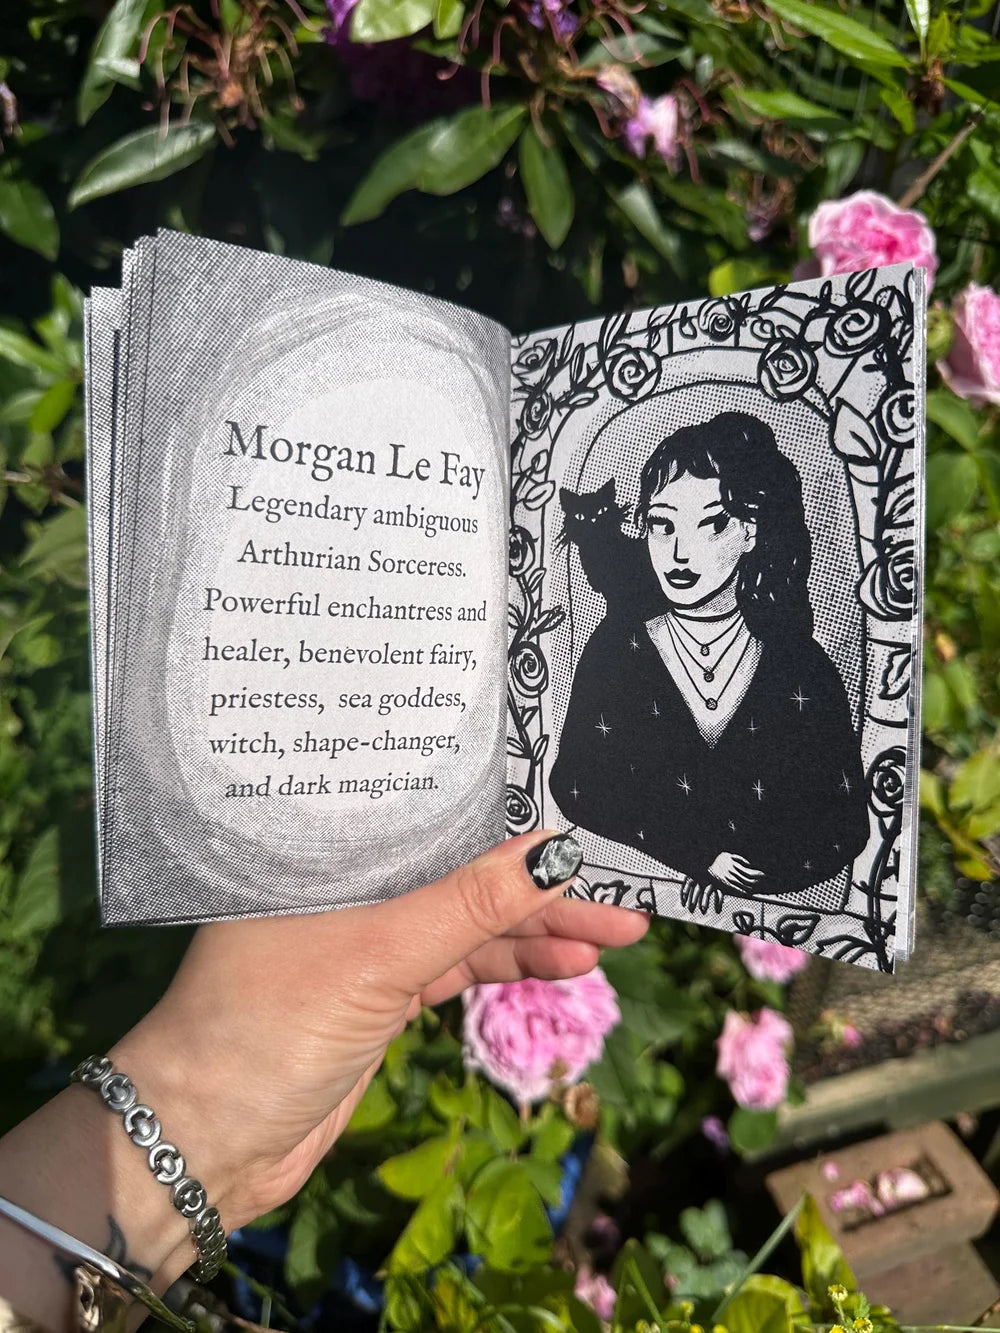 Morgan Le Fay
Legendary ambiguous
Arthurian Sorceress.
Powerful enchantress and
healer, benevolent fairy,
priestess, sea goddess,
witch, shape-changer,
and dark magician.